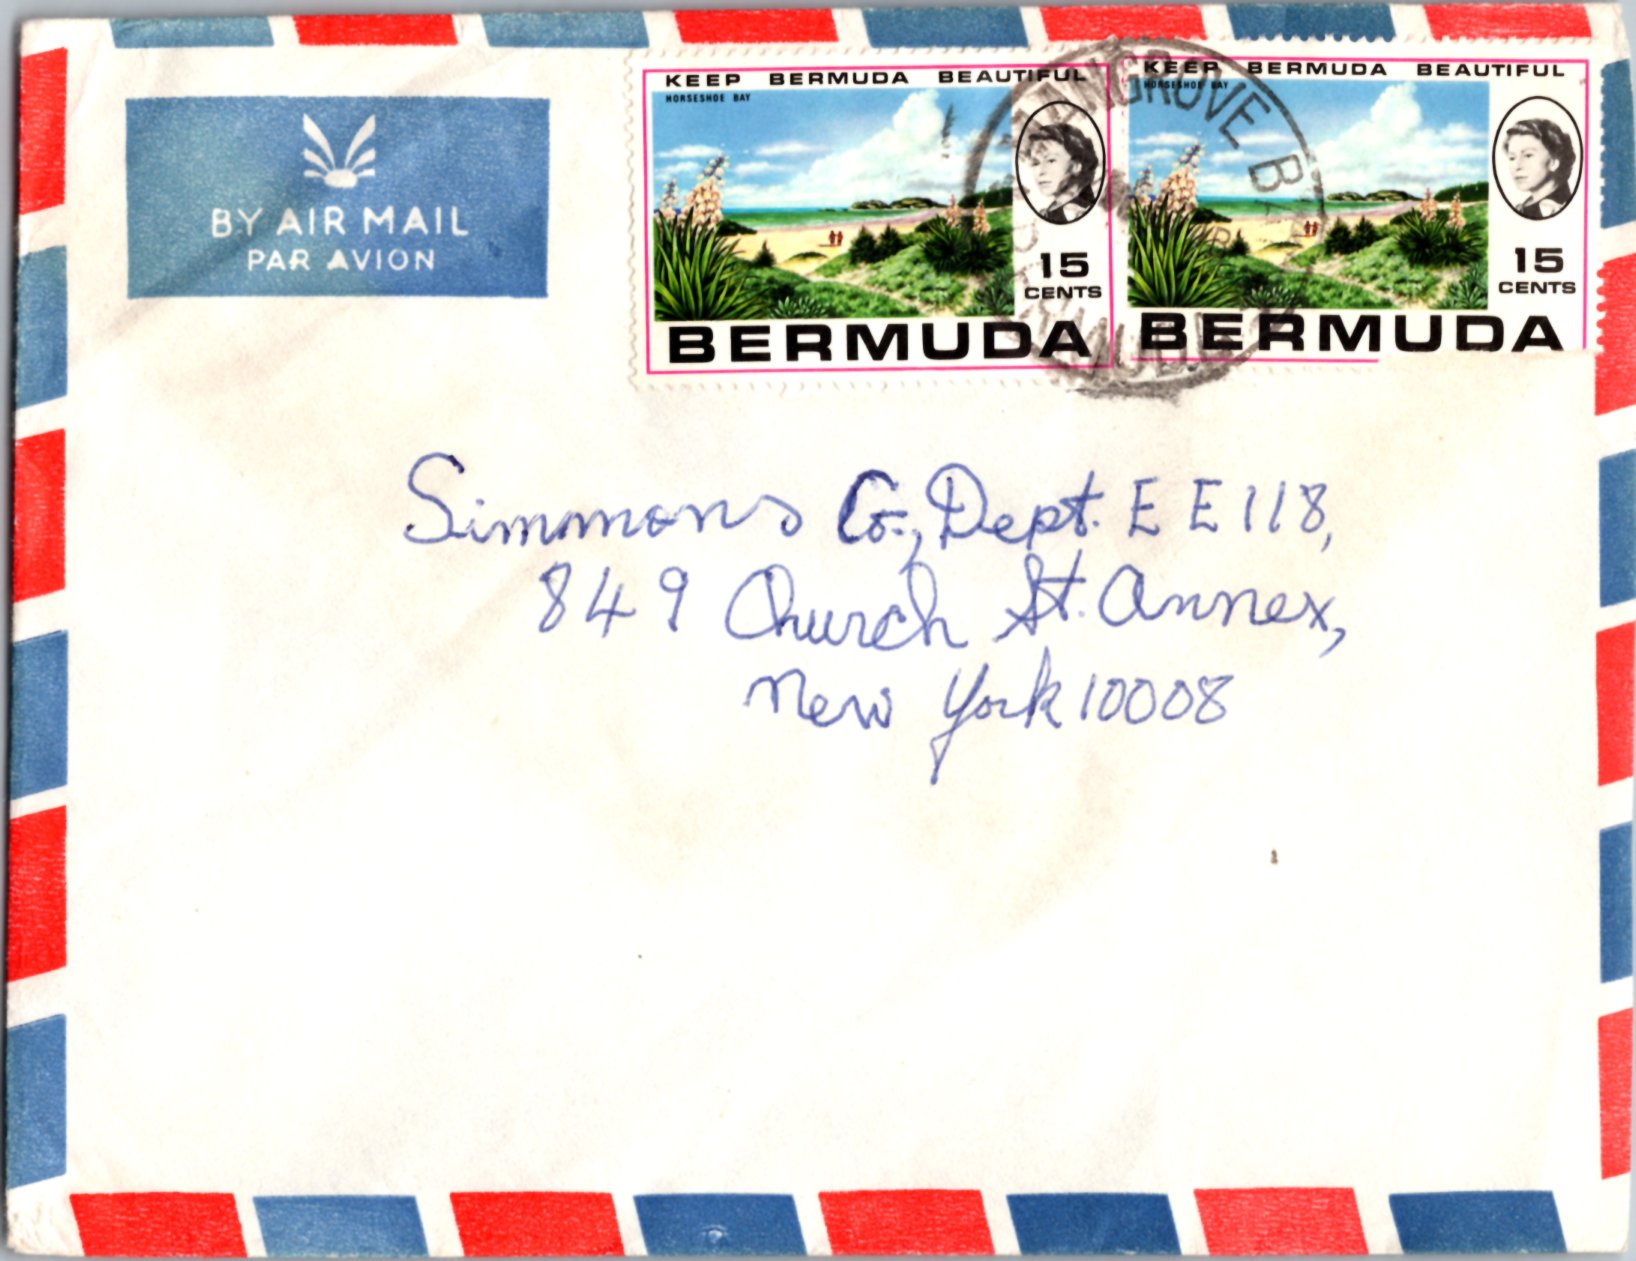 BY AIR MAIL
PAR AVION
KEEP BERMUDA BEAUTIFUL
HORSESHOE BAY
15
CENTS
BERMUDA
KEEP BERMUDA BEAUTIFUL
HORSESHOE BAY
15
CENTS
BERMUDA
MANGROVE BAY
BERMUDA
Simmons Co., Dept. E E 118,
849 Church St. Annex,
New York 10008